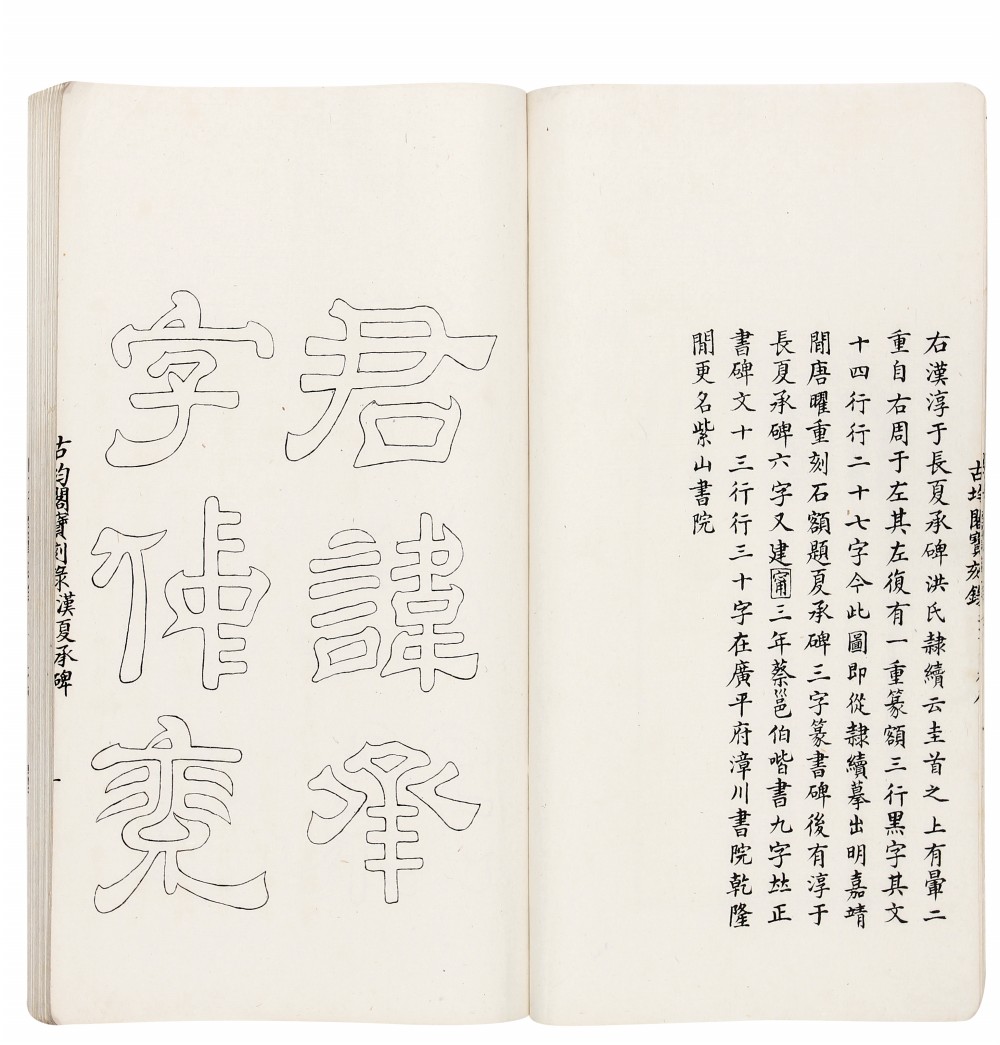 古均閣寶刻錄
右漢淳于長夏承碑洪氏隸續云圭首之上有暈二
重自右周于左其左復有一重篆額三行黑字其文
十四行行二十七字今此圖即從隸續摹出明嘉靖
閒唐曜重刻石額題夏承碑三字篆書碑後有淳于
長夏承碑六字又建甯三年蔡邕伯喈書九字𠀤正
書碑文十三行行三十字在廣平府漳川書院乾隆
閒更名紫山書院
君諱承
字仲兖
古均閣寶刻錄 漢夏承碑 一